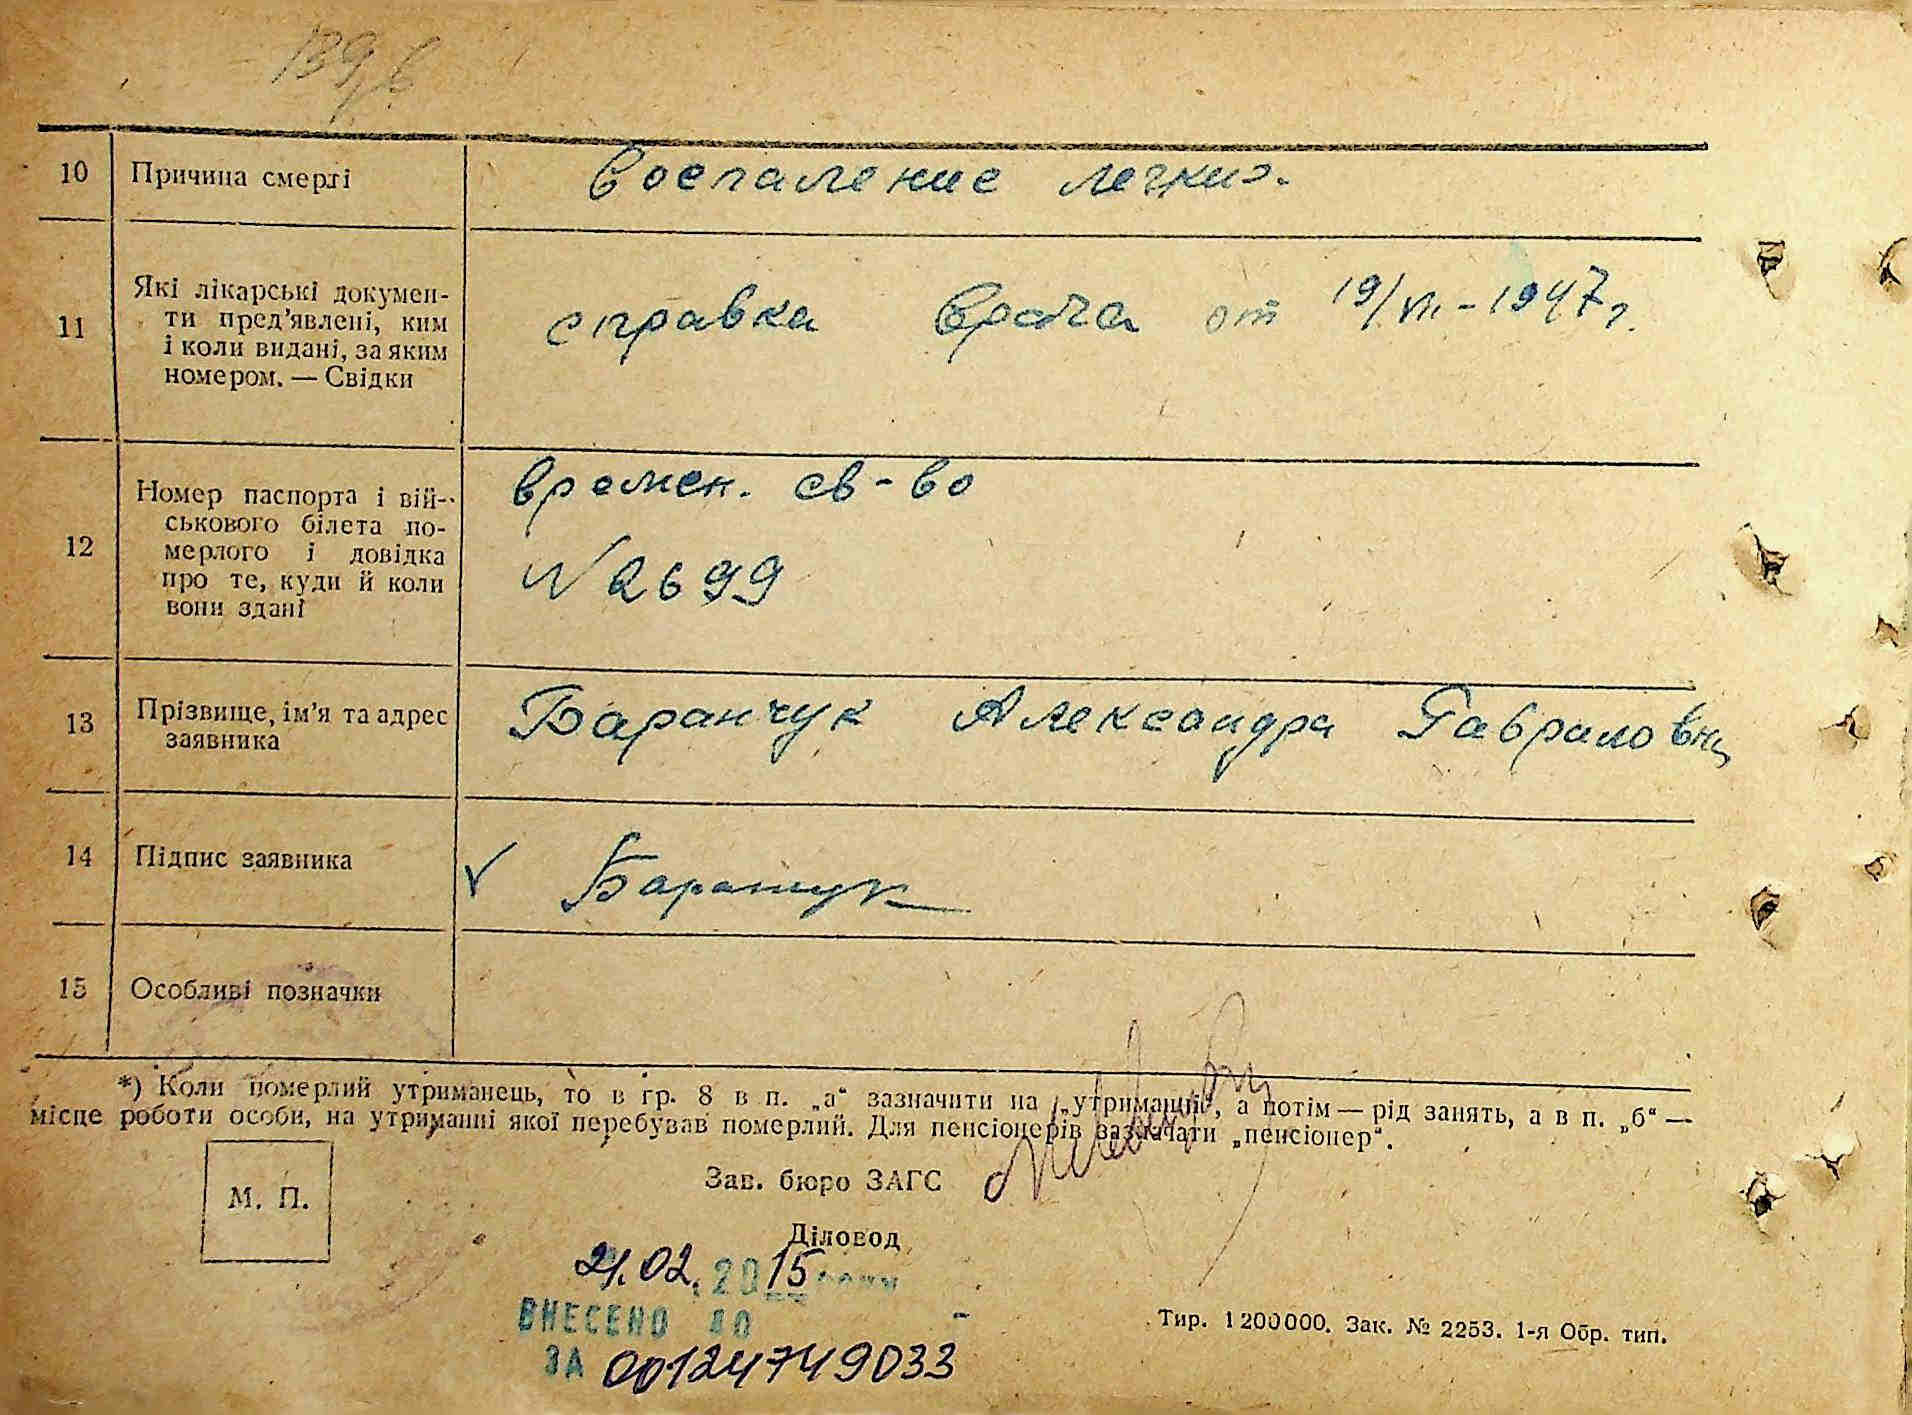 10 Причина смерті Воспаление легких.
11 Які лікарські докумен-
ти пред'явлені, ким
і коли видані, за яким
номером. — Свідки
справка врача от 19/VII - 1947 г.
12 Номер паспорта і вій-
ськового білета по-
мерлого і довідка
про те, куди й коли
вони здані
времен. св-во
N 2699
13 Прізвище, ім'я та адрес
заявника
Баранчук Александра Гавриловн
14 Підпис заявника √ Баранчук
15 Особливі позначки
*) Коли померлий утриманець, то в гр. 8 в п. „а“ зазначити на „утриманні“, а потім — рід занять, а в п. „б“ —
місце роботи особи, на утриманні якої перебував померлий. Для пенсіонерів зазначати „пенсіонер“.
Зав. бюро ЗАГС
М. П.
Діловод
21.02. 2015 року
ВНЕСЕНО ДО
ЗА 00124749033
Тир. 1200000. Зак. № 2253. 1-я Обр. тип.